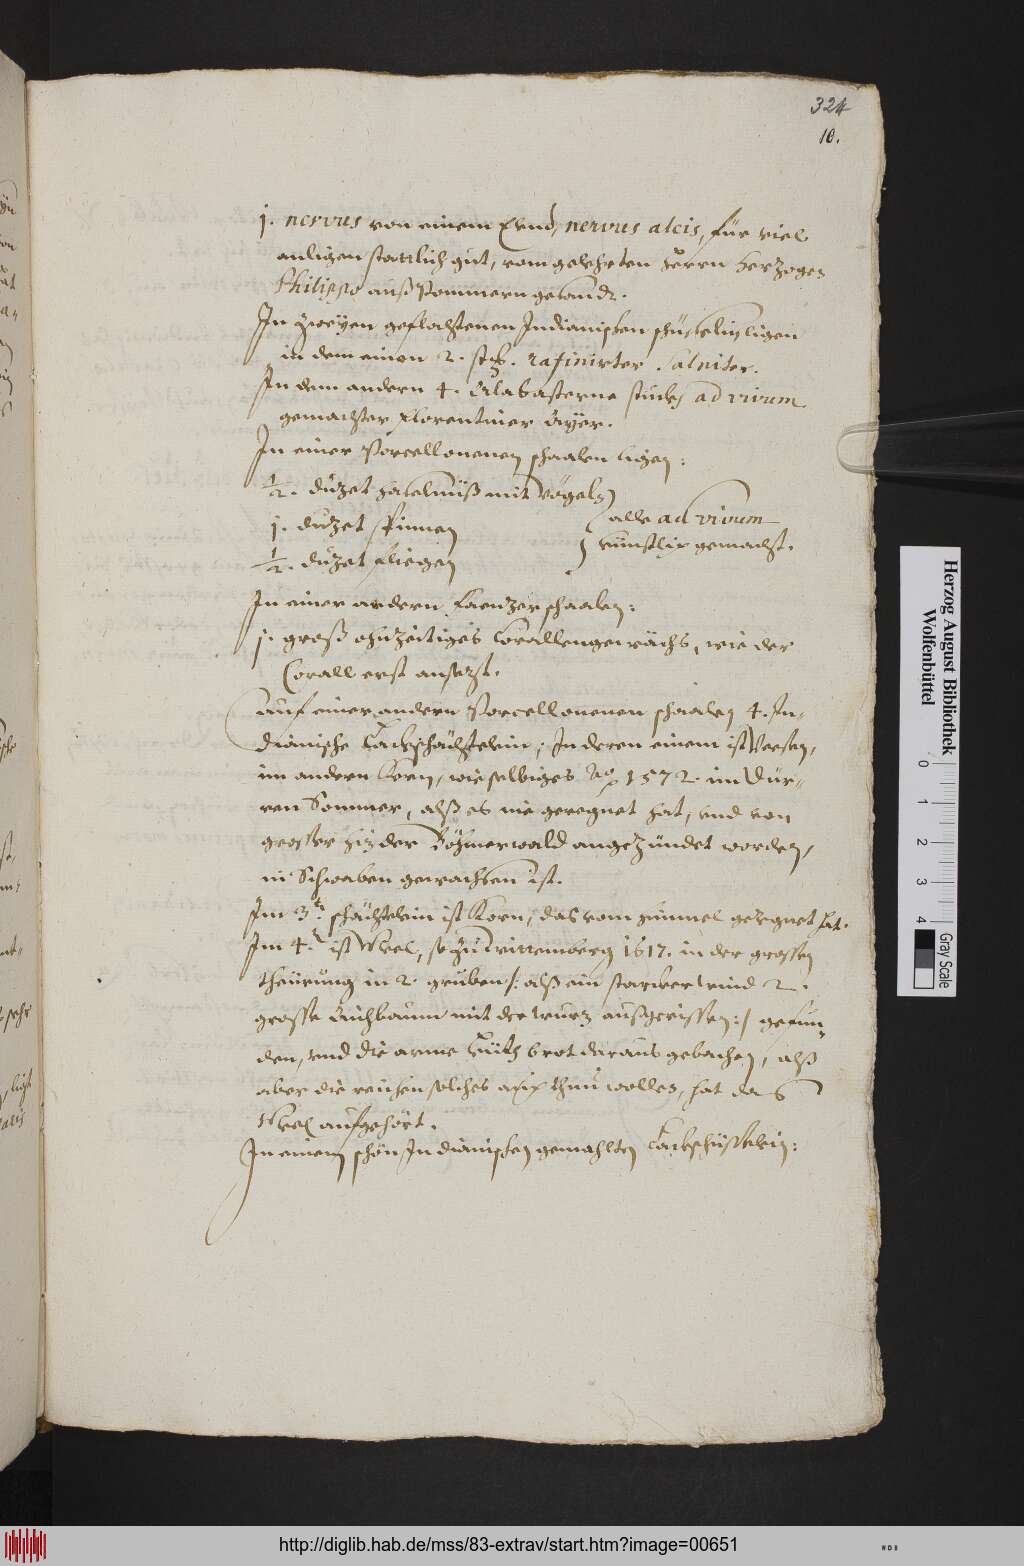 324
10.
j. nervus von einem Elend, nervus alcis, für viel
anligen stattlich gut, vom gelehrten Herrn Herzogen
Philippo auß Pommern gesandt.
In zweyen geflochtenen Indianischen schüsselin ligen
in dem einen 2. stck. rafinirter Salniter.
In dem andern 4. Alabasterne stuck, ad vivum
gemachter Florentiner Ayer.
In einer Porcellonenen schaalen ligen:
½. duzet haselnüß mit Vögeln
j. duzet spinnen
½. duzet fliegen
alle ad vivum
künstlich gemacht.
In einer andern schaalen:
j. groß ohnzeitiges Corallengewächs, wie der
Corall erst ansezt.
Auf einer andern Porcellonenen schaalen 4. In-
dianische Lackschächtelein; In deren einem ist Veesen,
im andern Korn, wie selbiges Ao 1572. im Dür-
ren Sommer, alß es nie geregnet hat, vnd von
grosser hiz der Böhmerwald angezündet worden,
in Schwaben gewachsen ist.
Im 3t. schächtelein ist Korn, das vom himmel geregnet hat.
Im 4. ist Meel, so zu Wirtemberg 1617. in der grossen
theürung in 2. gruben /: alß ein starcker wind 2.
grosse Aichbaum mit der wurz außgerissen :/ gefun-
den, vnd die arme Leüth brot daraus gebachen, alß
aber die reichen solches auch thun wollen, hat das
Meel aufgehört.
In einem schön Indianischen gemahlten Lackschüsselein:
Herzog August Bibliothek
Wolfenbüttel
0 1 2 3 4
Gray Scale
http://diglib.hab.de/mss/83-extrav/start.htm?image=00651